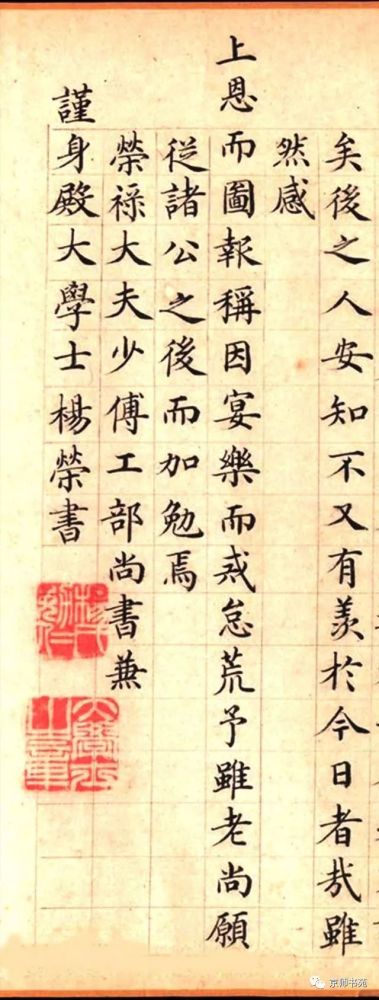 矣後之人安知不又有羨於今日者哉雖
然感
上恩而圖報稱因宴樂而戒怠荒予雖老尚願
從諸公之後而加勉焉
榮祿大夫少傅工部尚書兼
謹身殿大學士楊榮書
楊氏勉仁
大學士章
京师书苑